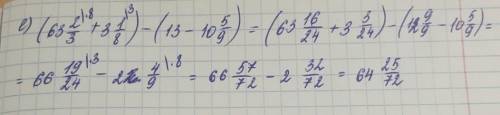 е) (63 2/3\8 + 3 1/8\3) - (13 - 10 5/9) = (63 16/24 + 3 3/24) - (12 9/9 - 10 5/9) =
= 66 19/24\3 - 2 4/9\8 = 66 57/72 - 2 32/72 = 64 25/72